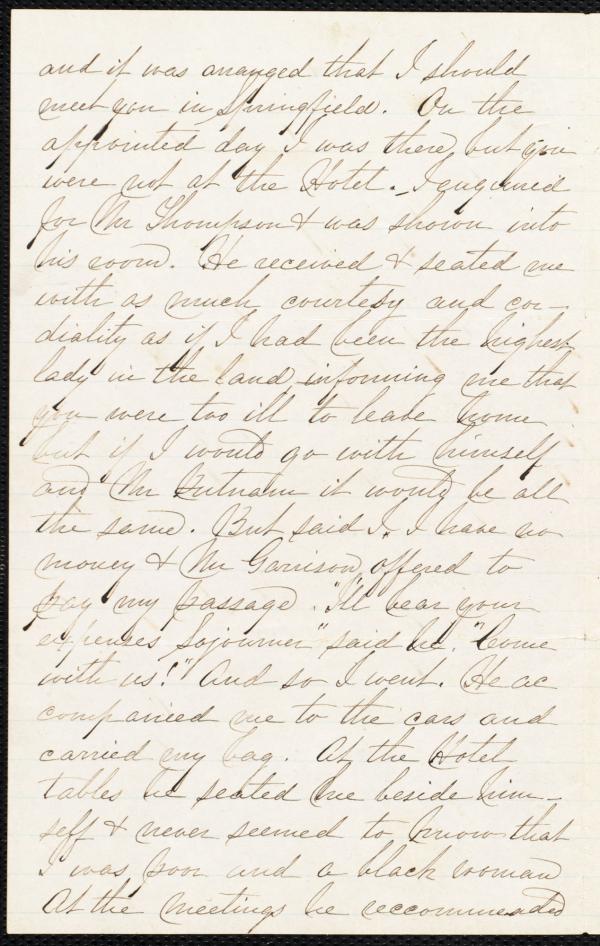 and it was arranged that I should
meet you in Springfield. On the
appointed day I was there, but you
were not at the Hotel. I enquired
for Mr Thompson & was shown into
his room. He received & seated me
with as much courtesy and cor-
diality as if I had been the highest
lady in the land, informing me that
you were too ill to leave home
but if I would go with himself
and Mr Putnam it would be all
the same. But said I, I have no
money & Mr Garrison offered to
pay my passage. "I'll bear your
expenses Sojourner" said he. "Come
with us!" And so I went. He ac
companied me to the cars and
carried my bag. At the Hotel
tables he seated me beside him-
self & never seemed to know that
I was poor and a black woman
At the meetings he reccommended